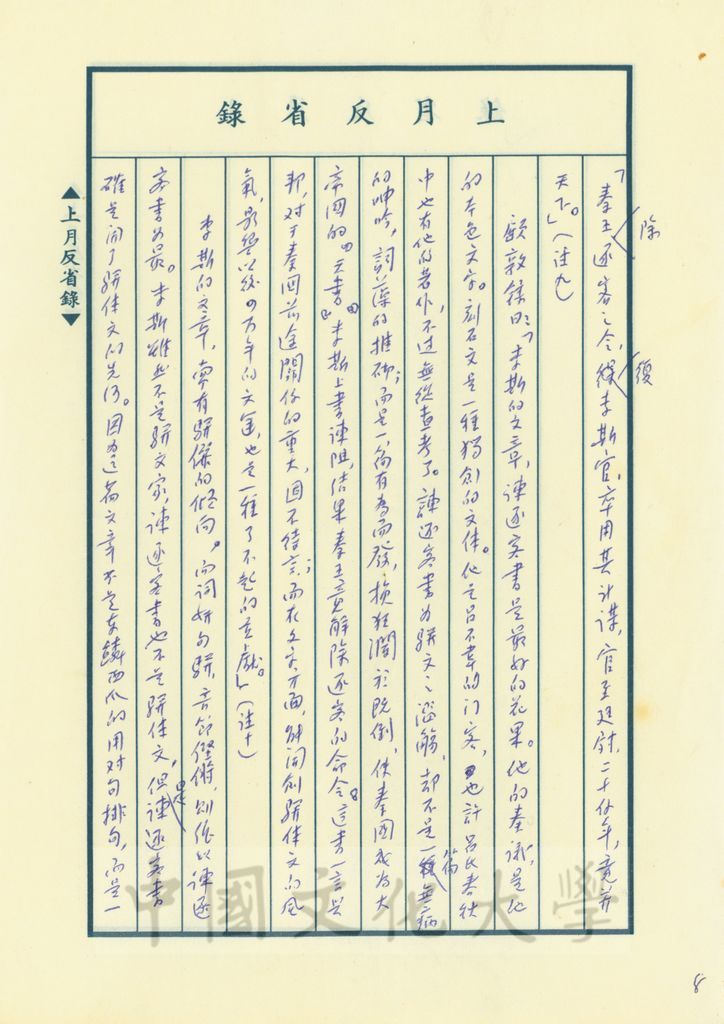 上月反省錄
「秦王除逐客之令,復李斯官,卒用其計謀,官至廷尉,二十餘年,竟并
天下。」(註九)
顧敦鍒曰:「李斯的文章,諫逐客書是最好的花果。他的奏議,是他
的本色文字。刻石文是一種獨創的文体。他是呂不韋的门客,也許呂氏春秋
中也有他的著作,不过無從查考了。諫逐客書為駢文之濫觴,却不是一篇無病
的呻吟,詞藻的推砌;而是一篇有為而發,挽狂瀾於既倒,使秦國成為大
帝國的『天書』。李斯上書諫阻,結果秦王竟解除逐客的命令。這書一言興
邦,对于秦国前途關係的重大,固不待言;而在文学方面,能開創駢体文的風
氣,影響以後の万年的文運,也是一種了不起的貢獻。」(註十)
李斯的文章,富有駢儷的傾向。而詞妍句駢,音節鏗鏘,則當以諫逐
客書為最。李斯雖然不是駢文家,諫逐客書也不是駢体文,但是諫逐客書
確是開了駢体文的先河。因為這篇文章不是東鱗西爪的用对句排句,而是一
上月反省錄
中國文化大學
8